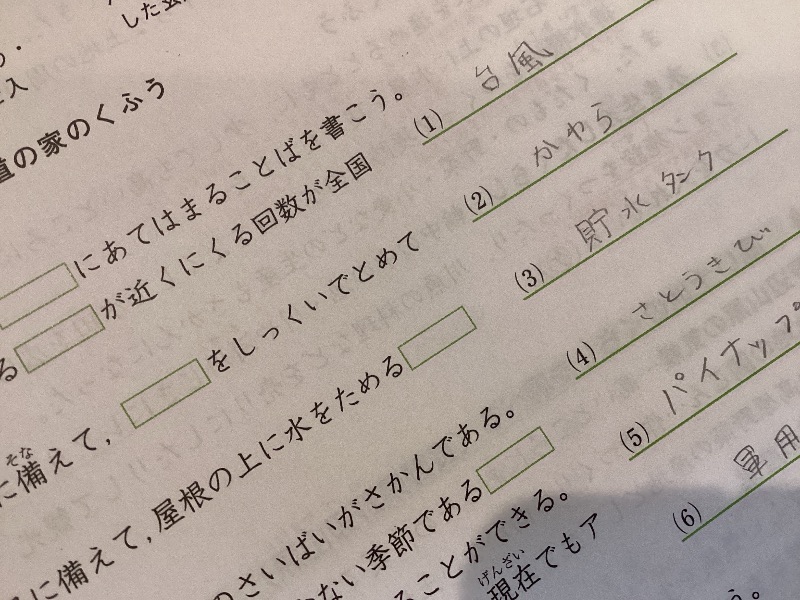 した
入
道の家のくふう
にあてはまることばを書こう。
る が近くにくる回数が全国
に備えて, をしっくいでとめて
そな
に備えて, 屋根の上に水をためる
のさいばいがさかんである。
ない季節である
ることができる。
げんざい
現在でもア
う。
(1) 台風
(2) かわら
(3) 貯水タンク
(4) さとうきび
(5) パイナップ
(6) 軍用